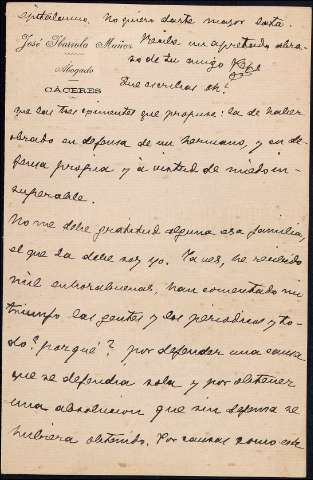 epitalamio. No quiero darte mayor lata.
José Ibarrola Muñoz
Recibe un apretado abra-
zo de tu amigo Pepe
Abogado
CÁCERES
Que escribas eh!
que las tres eximentes que propuse: la de haber
obrado en defensa de un hermano, y en de-
fensa propia y à virtud de miedo in-
superable.
No me debe gratitud alguna esa familia,
el que la debe soy yo. Ya ves, he recibido
mil enhorabuenas, han comentado mi
triunfo las gentes y los periodicos y to-
do ? porqué ? por defender una causa
que se defendia sola y por obtener
una absolucion que sin defensa se
hubiera obtenido. Por causas como esta